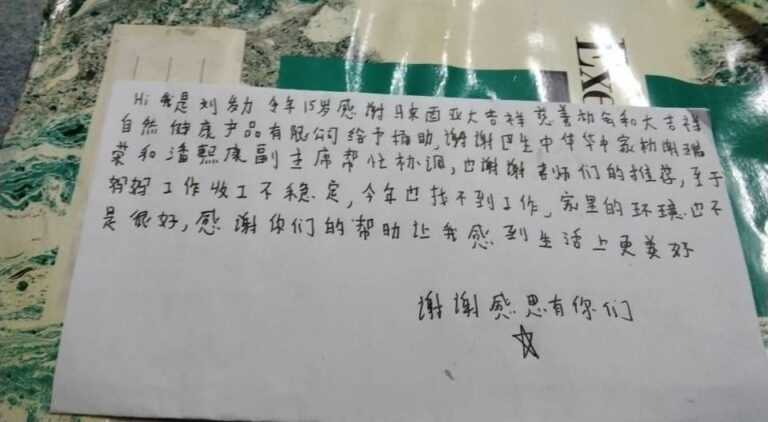 Hi 我是刘 今年15岁感谢马来西亚大吉祥慈善协会和大吉祥
自然健康产品有限公司给予捐助,谢谢巴生中华 中家协谢瑞
荣和潘熙康副主席帮忙协调,也谢谢老师们的推荐,至于
妈妈工作收工不稳定,今年也找不到工作,家里的环境也不
是很好,感谢你们的帮助让我感到生活上更美好
谢谢感恩有你们